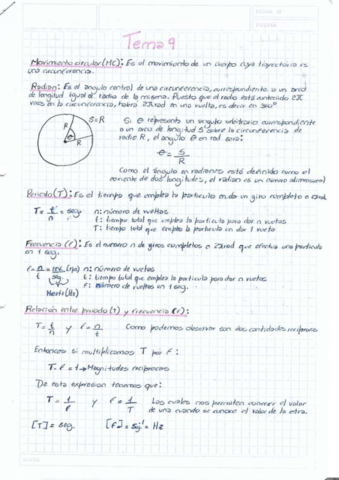 Tema 9
Movimiento circular (MC): Es el movimiento de un cuerpo cuya trayectoria es
una circunferencia.
Radian: Es el ángulo central de una circunferencia, correspondiente a un arco
de longitud igual al radio de la misma. Puesto que el radio está contenido 2π
veces en la circunferencia, habrá 2π rad en una vuelta, es decir en 360°
S=R
R
R
Si θ representa un ángulo arbitrario correspondiente
a un arco de longitud S sobre la circunferencia de
radio R, el ángulo θ en rad será:
θ = S/R
Como el ángulo en radianes está definido como el
cociente de dos longitudes, el radian es un número adimensional
Periodo (T): Es el tiempo que emplea la partícula en dar un giro completo o 2π rad
T = t/n = seg
n: número de vueltas
t: tiempo total que emplea la partícula para dar n vueltas
T: tiempo total que emplea la partícula en dar 1 vuelta
Frecuencia (f): Es el número n de giros completos o 2π rad que efectúa una partícula
en 1 seg.
n: número de vueltas
t: tiempo total que emplea la partícula para dar n vueltas
Hertz (Hz)
f: número de vueltas en 1 seg.
Relación entre periodo (T) y frecuencia (f):
T = t/n y f = n/t Como podemos observar son dos cantidades recíprocas
Entonces si multiplicamos T por f:
T · f = 1 → Magnitudes recíprocas
De esta expresion tenemos que:
T = 1/f y f = 1/T Las cuales nos permiten conocer el valor
de una cuando se conoce el valor de la otra.
[T] = seg. [f] = seg⁻¹ = Hz